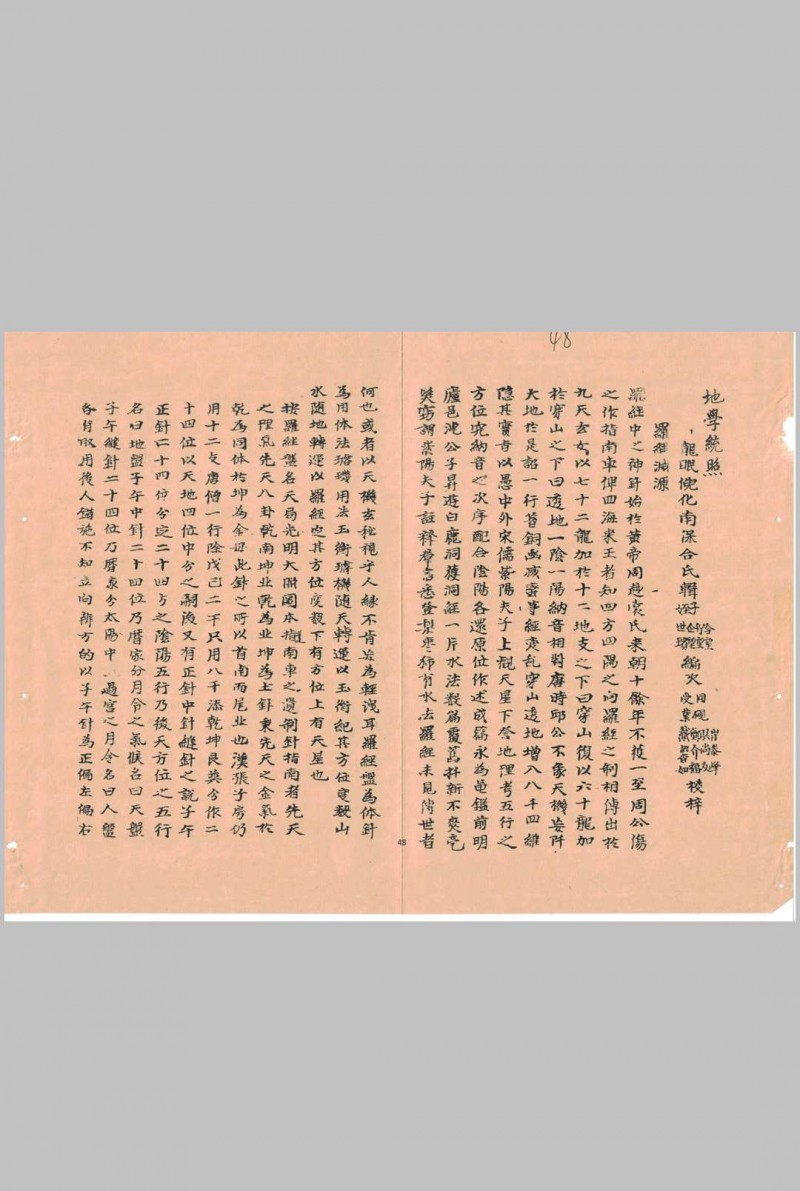 48
地學統照
龍眠倪化南深合氏輯 編次 校梓
羅經溯源
羅經中之神針始於黃帝周越裳氏來朝十餘年不獲一至周公傷
之作指南車俾四海來王者知四方四隅之向羅經之制相傳出於
九天玄女以七十二龍加於十二地支之下曰穿山復以六十龍加
於穿山之下曰透地一陰一陽納音相對唐時邱公不象天機妄阡
大地於是詔一行著銅函滅蠻等經變亂穿山透地增入八千四維
隱其寶者以愚中外宋儒紫陽夫子上觀天星下察地理考五行之
方位究納音之次序配合陰陽各還原位作述成篇永為龜鑑前明
廬邑沈公子昇遊白鹿洞獲洞經一片水法數篇覆舊拜新不爽毫
髮竊謂紫陽夫子註釋羣書悉登梨棗獨有水法羅經未見傳世者
何也或者以天機玄秘視乎人緣不肯妄為輕洩耳羅經盤為体針
為用体法璿璣用法玉衡璿機隨天轉運以玉衡紀其方位度數山
水隨地轉運以羅經定其方位度數下有方位上有天星也
按羅經盤名天局光明大照圖本指南車之遺制針指南者先天
之理氣先天八卦乾南坤北乾為金坤為土針秉先天之金氣於
乾為同体於坤為金母此針之所以首南而尾北也漢張子房仍
用十二支唐僧一行除戊己二千只用八千添乾坤艮巽分作二
十四位以天地四位中分之嗣後又有正針中針縫針之說子午
正針二十四位分定二十四方之陰陽五行乃後天方位之五行
名曰地盤子午中針二十四位乃曆家分月令之氣候名曰天盤
子午縫針二十四位乃曆家分太陽中過宮之月令名曰人盤
各有取用後人錯施不知立向辨方的以子午針為正偏左偏右
48